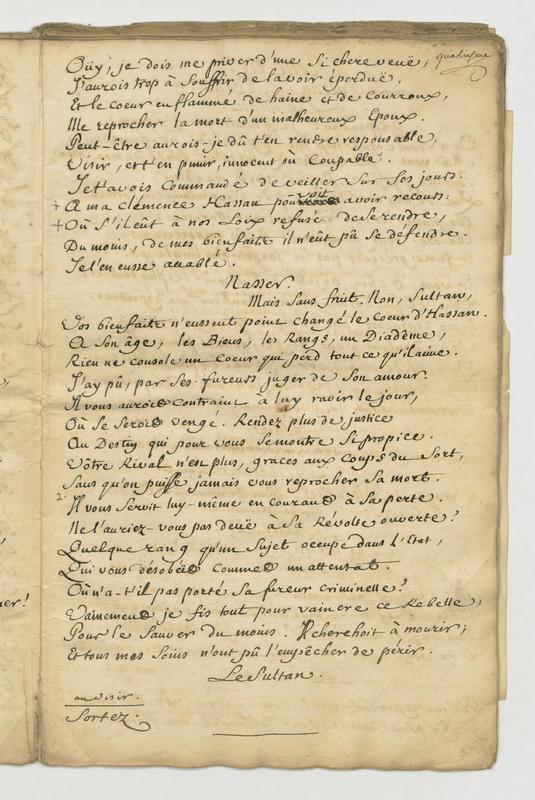 quatriesme
Oüy, je dois me priver d'une si chere veuë;
J'aurois trop à souffrir de la voir éperduë,
Et le coeur enflammé de haine et de Courroux,
Me reprocher la mort d'un malheureux Epoux.
Peut-être aurois-je dû t'en rendre responsable,
Visir, et t'en punir, innocent où Coupable.
Je t'avois Commandé de veiller sur ses jours.
+ A ma clémence Hassan pouvoit avoir recours:
+ Où s'il eût à nos Loix refusé de se rendre,
Du moins, de mes bienfaits il n'eût pû se défendre.
Je l'en eusse accablé.
Nasser.
Mais sans fruit. Non, Sultan,
Vos bienfaits n'eussent point changé le Coeur d'Hassan.
A son âge, les Biens, les Rangs, un Diadême,
Rien ne console un Coeur qui perd tout ce qu'il aime.
J'ay pû, par ses fureurs juger de son amour.
Il vous auroit contraint à luy ravir le jour,
Où se seroit vengé. Rendez plus de justice
Au Destin qui pour vous se montre si propice.
Vôtre Rival n'est plus, graces aux Coups du Sort,
Sans qu'on puisse jamais vous reprocher sa mort.
Il vous servit luy-même en courant à sa perte.
Ne l'auriez-vous pas deuë à sa Révolte ouverte?
Quelque rang qu'un Sujet occupe dans l'Etat,
Qui vous désobéit commet un attentat.
Où n'a-t'il pas porté sa fureur criminelle?
Vainement je fis tout pour vaincre ce Rebelle,
Pour le sauver du moins. Il cherchoit à mourir;
Et tous mes soins n'ont pû l'empêcher de périr.
Le Sultan.
au Visir.
Sortez.